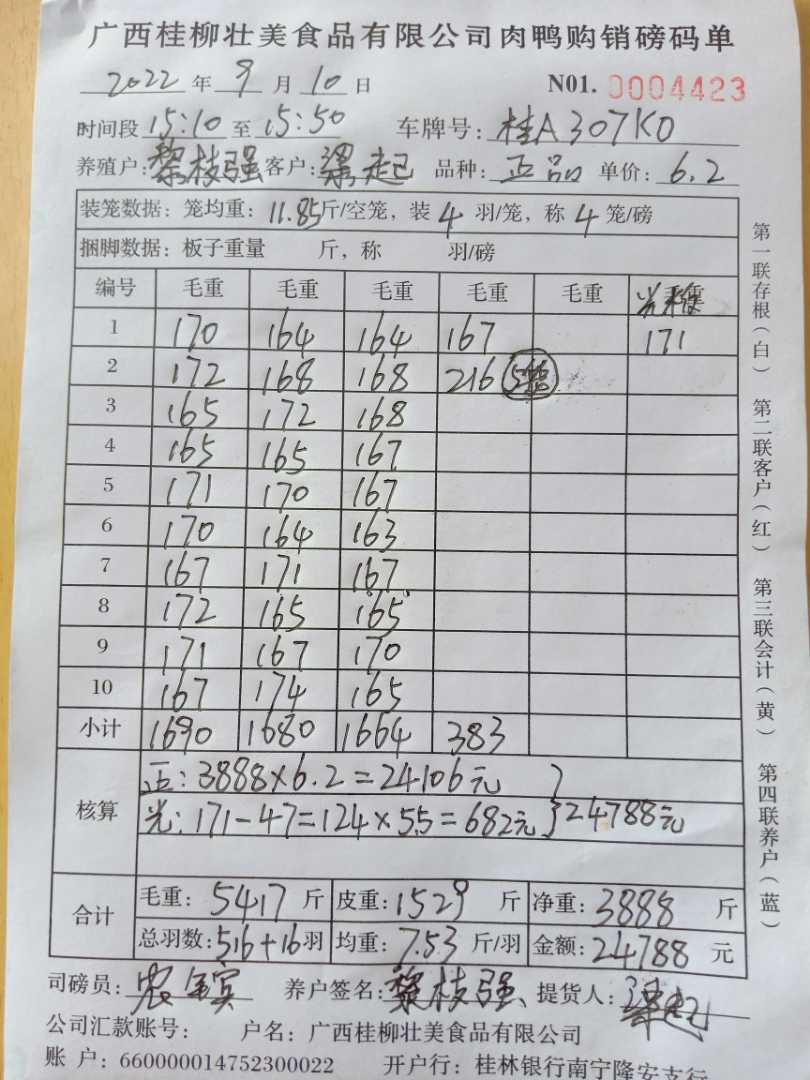 广西桂柳壮美食品有限公司肉鸭购销磅码单
2022 年 9 月 10 日 N01. 0004423
时间段 15:10 至 15:50 车牌号: 桂A307K0
养殖户: 黎枝强 客户: 梁起 品种: 正品 单价: 6.2
装笼数据: 笼均重: 11.85 斤/空笼, 装 4 羽/笼, 称 4 笼/磅
捆脚数据: 板子重量 斤, 称 羽/磅
编号 毛重 毛重 毛重 毛重 毛重
1 170 164 164 167 171
2 172 168 168 216 5笼
3 165 172 168
4 165 165 167
5 171 170 167
6 170 164 163
7 167 171 167
8 172 165 165
9 171 167 170
10 167 174 165
小计 1690 1680 1664 383
核算
正: 3888×6.2=24106元
光: 171-47=124×5.5=682元 } 24788元
合计
毛重: 5417 斤 皮重: 1529 斤 净重: 3888 斤
总羽数: 516+16 羽 均重: 7.53 斤/羽 金额: 24788 元
司磅员: 养户签名: 黎枝强 提货人: 梁起
公司汇款账号: 户名: 广西桂柳壮美食品有限公司
账 户: 660000014752300022 开户行: 桂林银行南宁隆安支行
第一联存根(白)
第二联客户(红)
第三联会计(黄)
第四联养户(蓝)